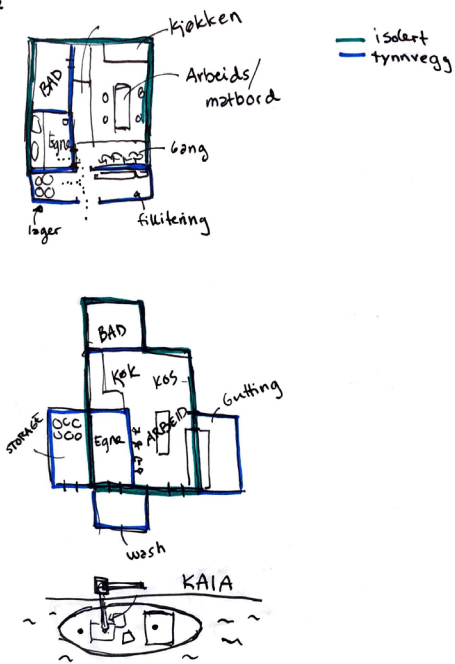 Kjøkken
isolert
tynnvegg
BAD
Arbeids/
matbord
Egne
Gang
lager
fillitering
BAD
KØK
KOS
Gutting
STORAGE
Egne
ARBEID
wash
KAIA